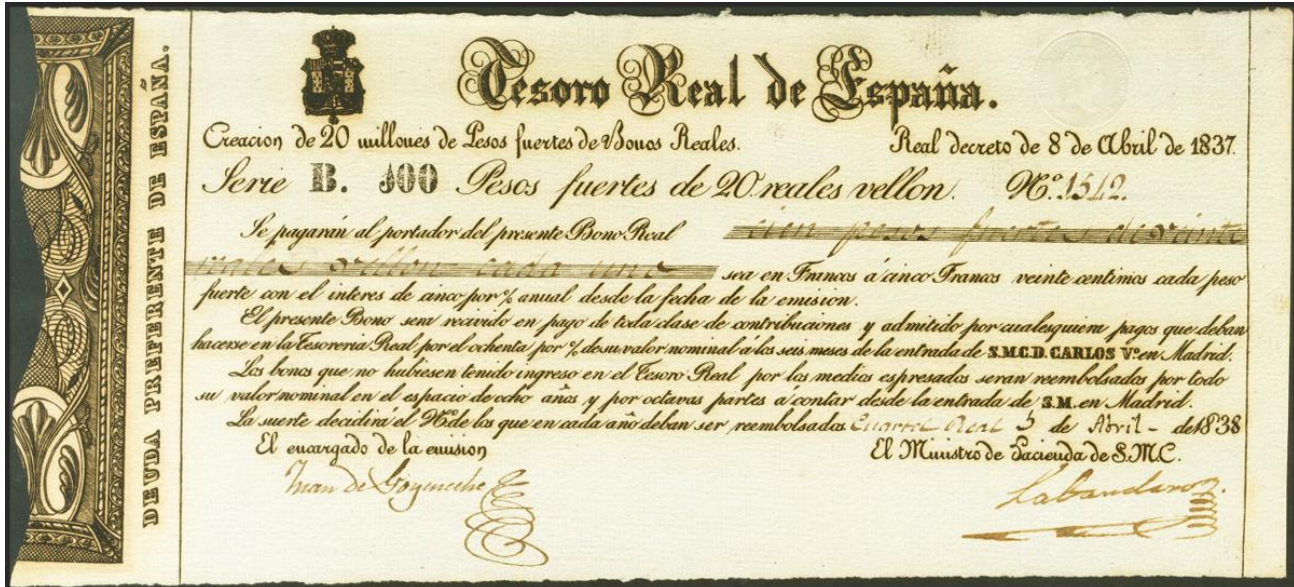 DEUDA PREFERENTE DE ESPAÑA.
Tesoro Real de España.
Creacion de 20 millones de Pesos fuertes de Bonos Reales. Real decreto de 8 de Abril de 1837.
Serie B. 100 Pesos fuertes de 20 reales vellon. Nº 1542.
Se pagarán al portador del presente Bono Real cien pesos fuertes de veinte
reales vellon cada uno sea en Francos á cinco Francos veinte centimos cada peso
fuerte con el interes de cinco por % anual desde la fecha de la emision.
El presente Bono sera recivido en pago de toda clase de contribuciones y admitido por cualesquiera pagos que deban
hacerse en la Tesoreria Real por el ochenta por % de su valor nominal á los seis meses de la entrada de S.M.C.D. CARLOS Vº en Madrid.
Los bonos que no hubiesen tenido ingreso en el Tesoro Real por los medios espresados seran reembolsados por todo
su valor nominal en el espacio de ocho años y por octavas partes á contar desde la entrada de S.M. en Madrid.
La suerte decidirá el Nº de los que en cada año deban ser reembolsados Cuartel Real 5 de Abril - de 1838
El encargado de la emision El Ministro de Hacienda de S.M.C.
Juan de Goyeneche Labandero